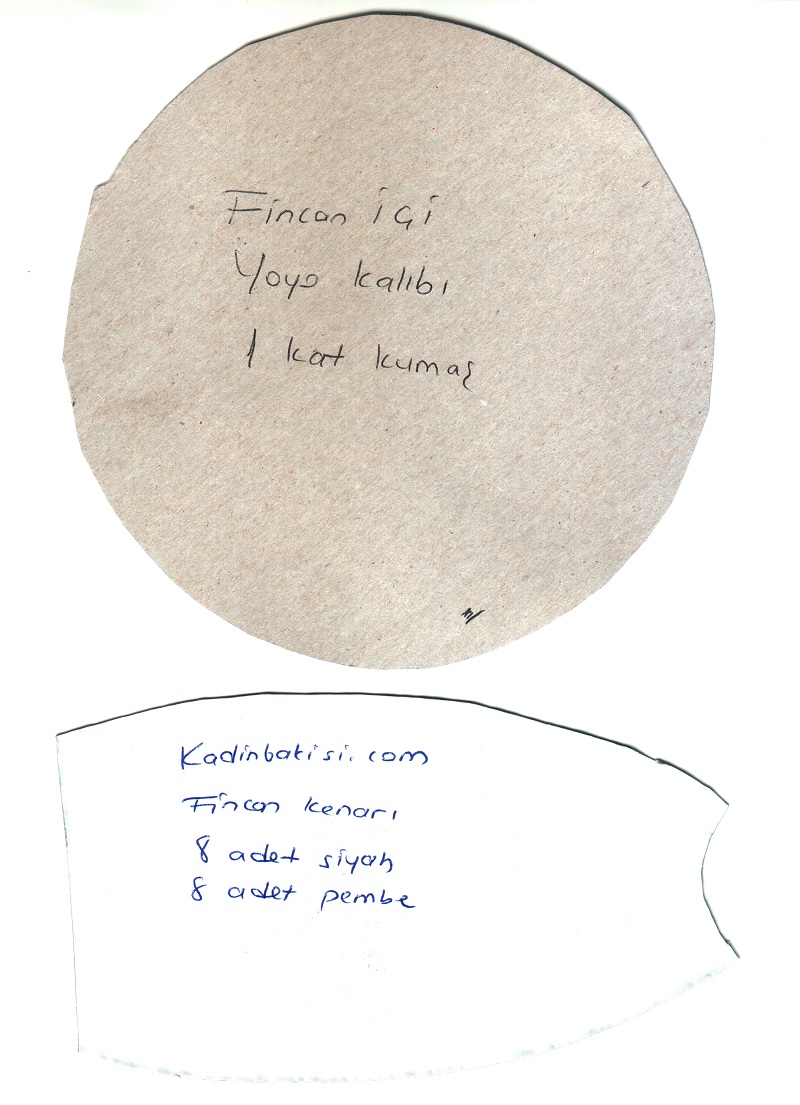 Fincan içi
Yoyo kalıbı
1 kat kumaş
Kadinbakisi.com
Fincan kenarı
8 adet siyah
8 adet pembe